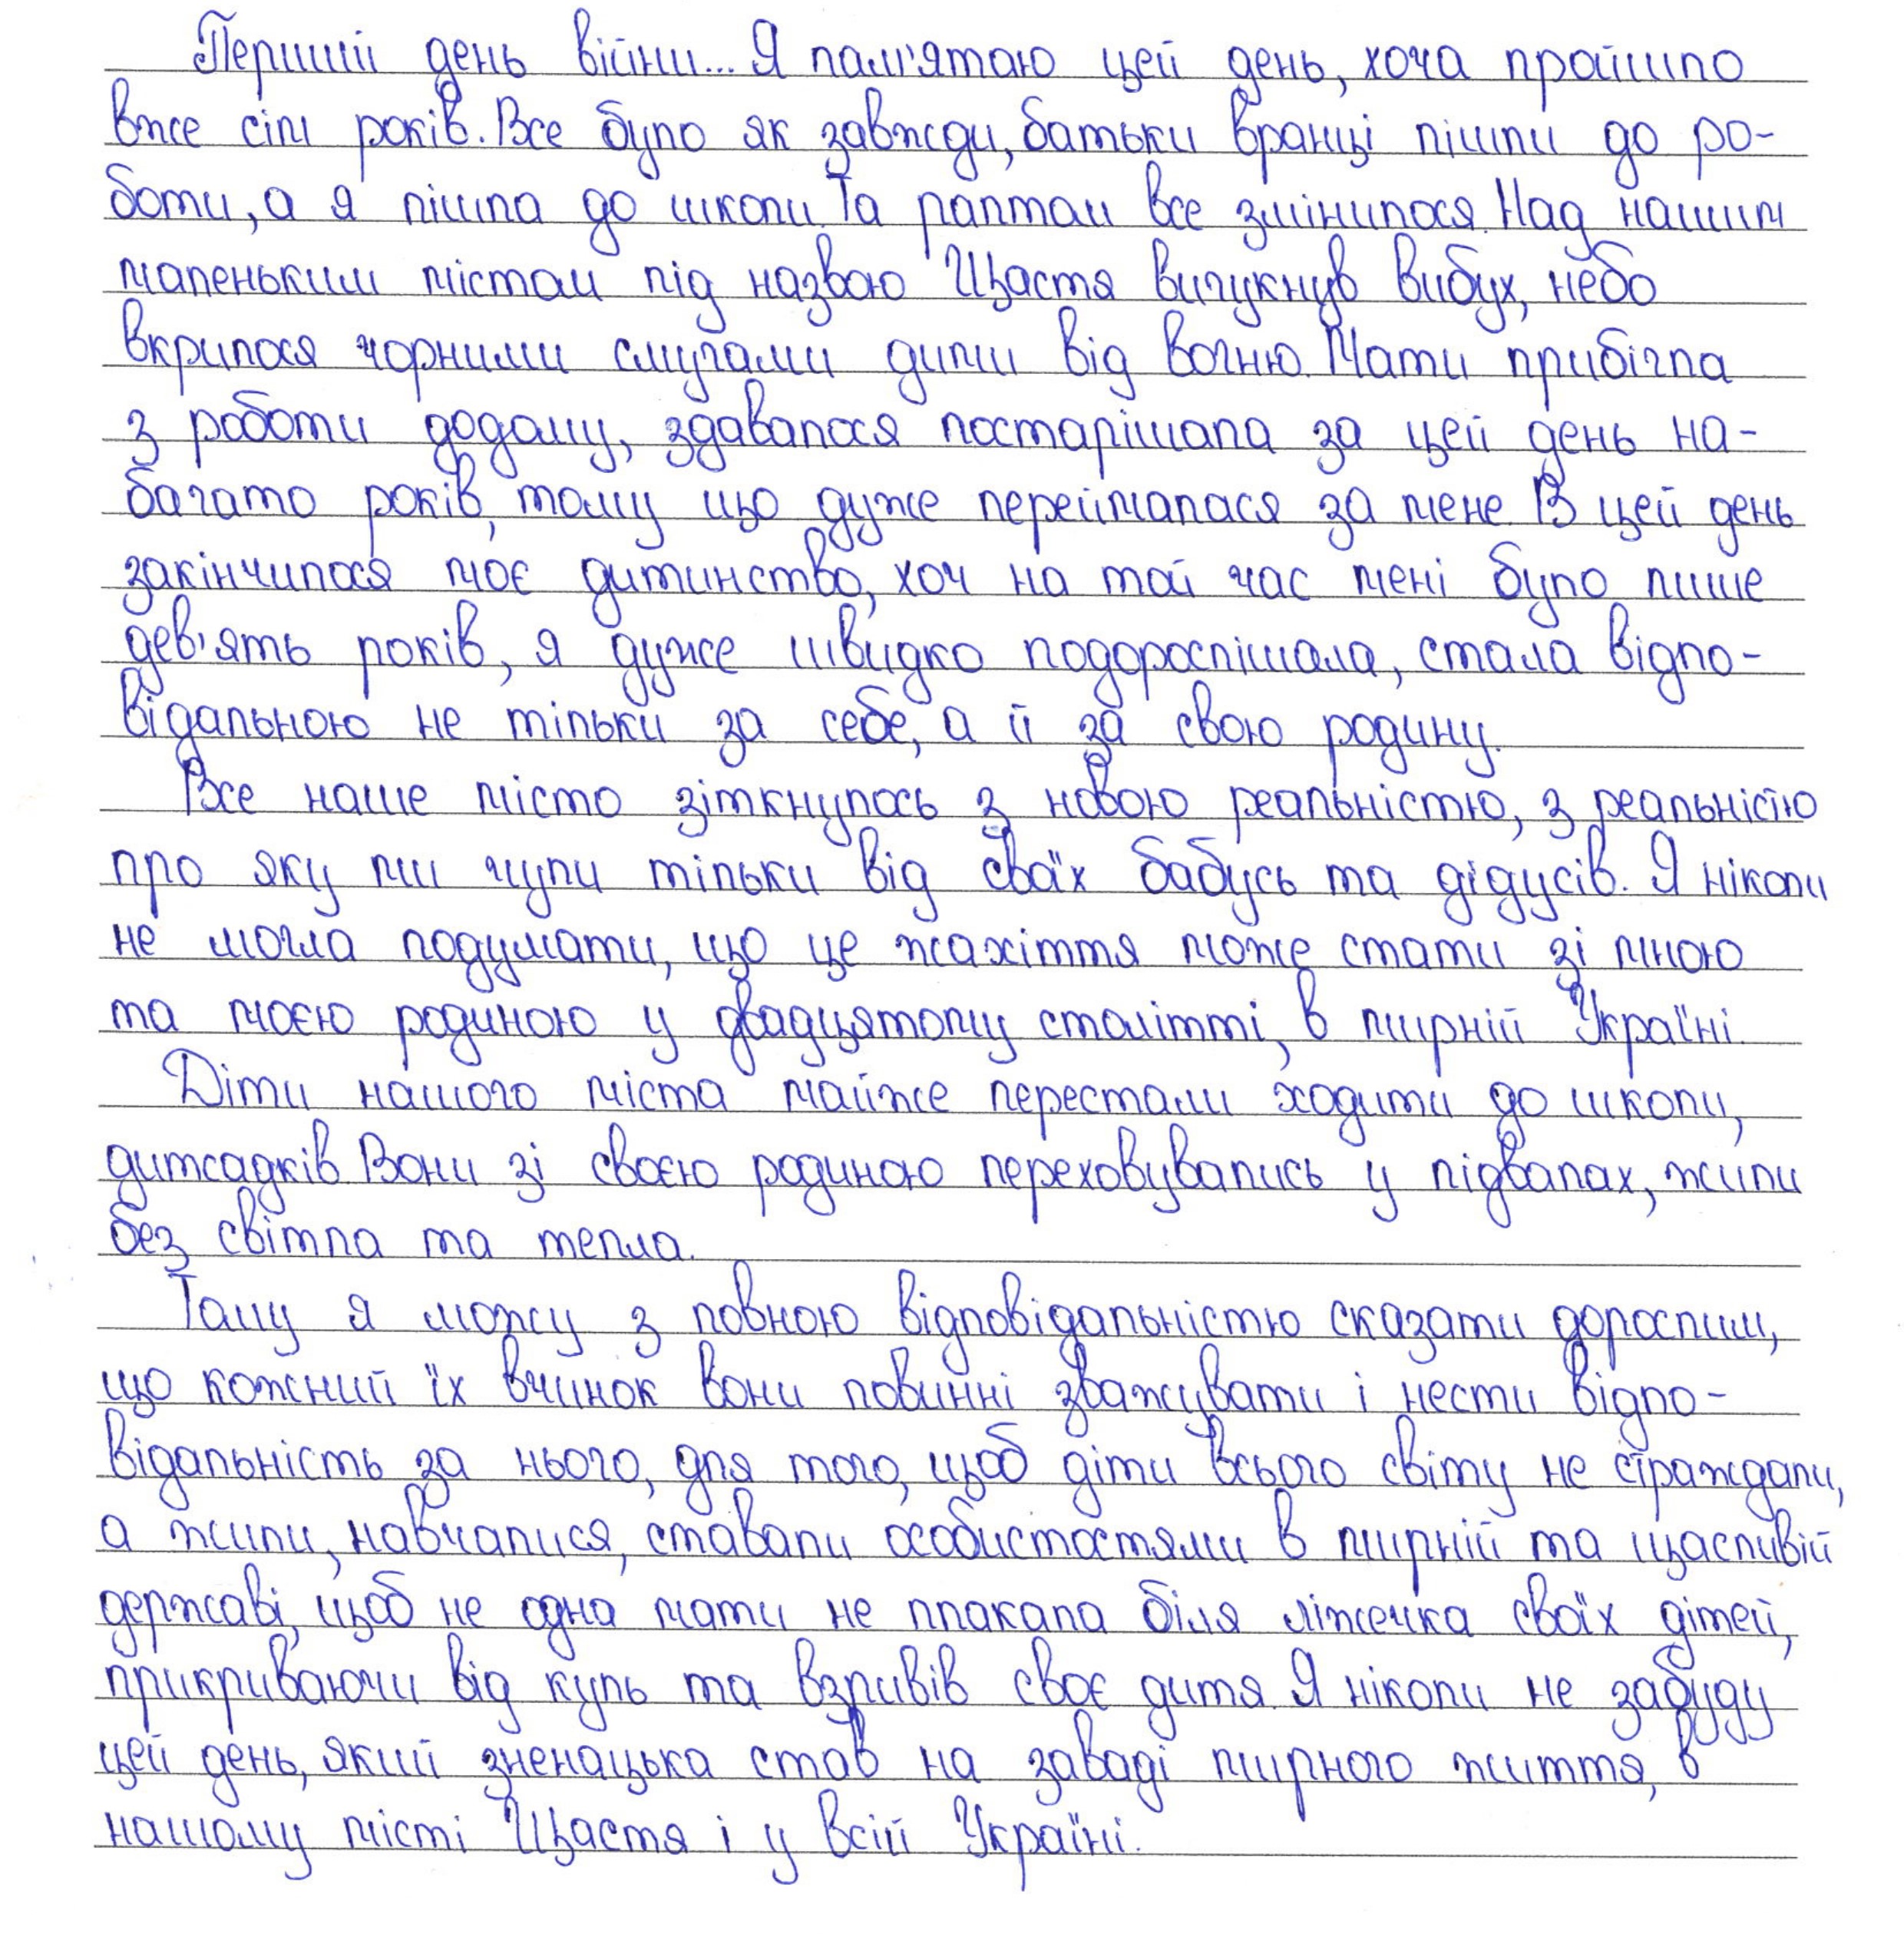 Перший день війни... Я пам'ятаю цей день, хоча пройшло
вже сім років. Все було як завжди, батьки вранці пішли до ро-
боти, а я пішла до школи. Та раптом все змінилося. Над нашим
маленьким містом під назвою Щастя вигукнув вибух, небо
вкрилося чорними смугами дими від вогню. Мати прибігла
з роботи додому, здавалося постарішала за цей день на-
багато років, тому що дуже переймалася за мене. В цей день
закінчилося моє дитинство, хоч на той час мені було лише
дев'ять років, я дуже швидко подорослішала, стала відпо-
відальною не тільки за себе, а й за свою родину.
Все наше місто зіткнулось з новою реальністю, з реальністю
про яку ми чули тільки від своїх бабусь та дідусів. Я ніколи
не могла подумати, що це жахіття може стати зі мною
та моєю родиною у двадцятому столітті, в мирній Україні.
Діти нашого міста майже перестали ходити до школи,
дитсадків. Вони зі своєю родиною переховувались у підвалах, жили
без світла та тепла.
Тому я можу з повною відповідальністю сказати дорослим,
що кожний їх вчинок вони повинні зважувати і нести відпо-
відальність за нього, для того, щоб діти всього світу не страждали,
а жили, навчалися, ставали особистостями в мирній та щасливій
державі, щоб не одна мати не плакала біля ліжечка своїх дітей,
прикриваючи від куль та взривів своє дитя. Я ніколи не забуду
цей день, який зненацька став на заваді мирного життя, в
нашому місті Щастя і у всій Україні.